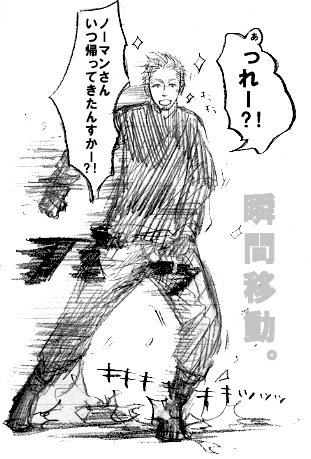 あ
つれー?!
ノーマンさん
いつ帰ってきたんすかー?!
瞬間移動。
キキキキ
キキィッッッッ